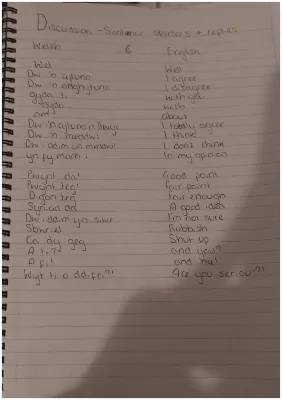 Discussion - Sentence starters + replies
Welsh & English
Wel Well
Dw i'n cytuno I agree
Dw i'n anghytuno I disagree
gyda ti with you
gyda with
am about
Dw i'n cytuno'n llwyr I totally agree
Dw i'n meddwl I think
Dw i ddim yn meddwl I don't think
yn fy marn i In my opinion
Pwynt da! Good point
Pwynt teg! Fair point
Digon teg Fair enough
Syniad da A good idea
Dw i ddim yn siwr I'm not sure
Sbwriel Rubbish
Ca dy geg Shut up
A ti? and you?
A fi! and me!
Wyt ti o ddifri?! Are you serious?!